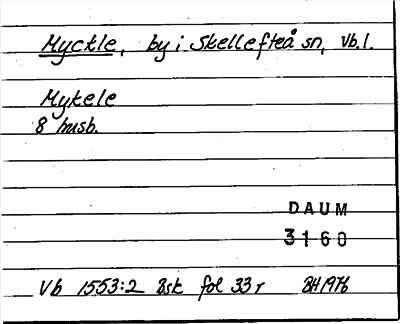 Myckle, by i Skellefteå sn, Vb.l.
Mykele
8 husb.
DAUM
3160
Vb 1553:2 Bsk fol 33r BH 1976